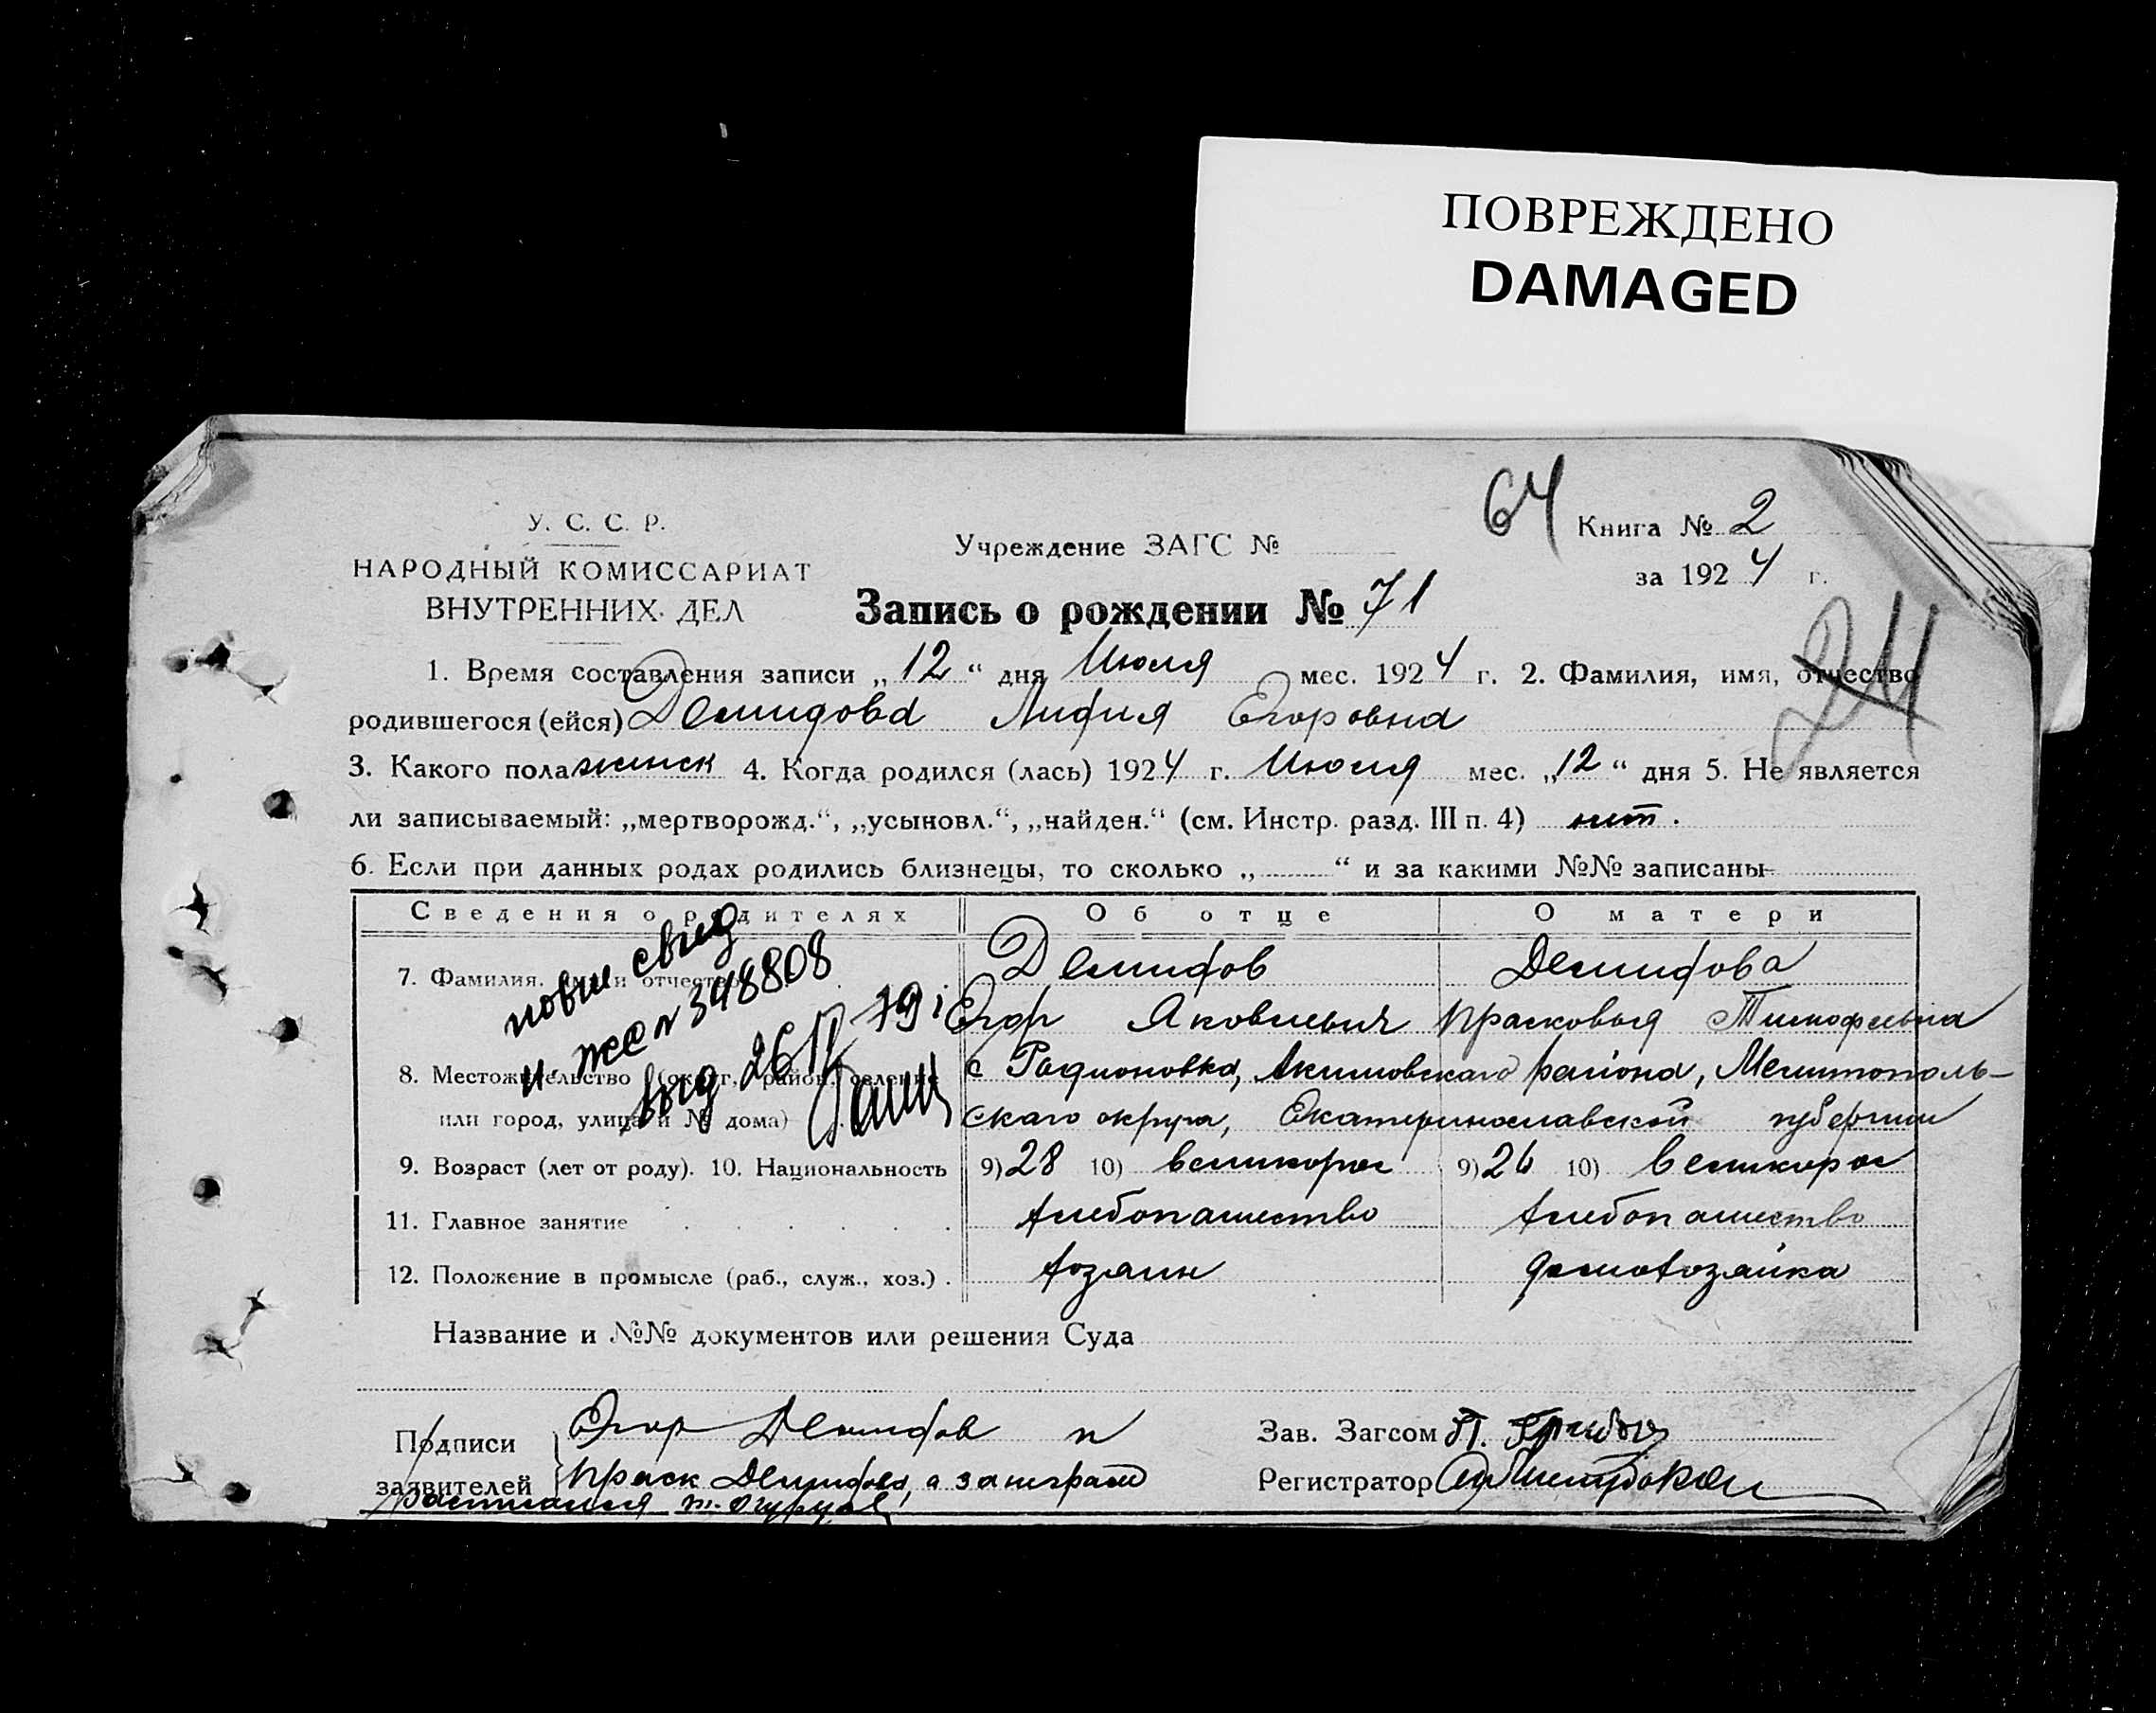 ПОВРЕЖДЕНО
DAMAGED
64
У. С. С. Р.
НАРОДНЫЙ КОМИССАРИАТ
ВНУТРЕННИХ ДЕЛ
Учреждение ЗАГС №
Книга № 2
за 1924 г.
Запись о рождении № 71
24
1. Время составления записи „12“ дня Июля мес. 1924 г. 2. Фамилия, имя, отчество
родившегося (ейся) Демидова Лидия Егоровна
3. Какого пола женск 4. Когда родился (лась) 1924 г. Июля мес. „12“ дня 5. Не является
ли записываемый: „мертворожд.“, „усыновл.“, „найден.“ (см. Инстр. разд. III п. 4) нет.
6. Если при данных родах родились близнецы, то сколько „ “ и за какими №№ записаны
Сведения о родителях Об отце О матери
7. Фамилия, имя и отчество Демидов Демидова
Егор Яковлевич Прасковья Тимофеевна
8. Местожительство (округ, район, селение с Радионовка, Акимовскаго района, Мелитополь-
или город, улица и № дома) скаго округа, Екатеринославской губернии
9. Возраст (лет от роду). 10. Национальность 9) 28 10) великорос 9) 26 10) великорос
11. Главное занятие хлебопашество хлебопашество
12. Положение в промысле (раб., служ., хоз.) хозяин домохозяйка
повт свид
№ 348808
выд 26 IV 79
Название и №№ документов или решения Суда
Подписи Егор Демидов и
заявителей Праск Демидова, а за неграм
расписался
Зав. Загсом
Регистратор